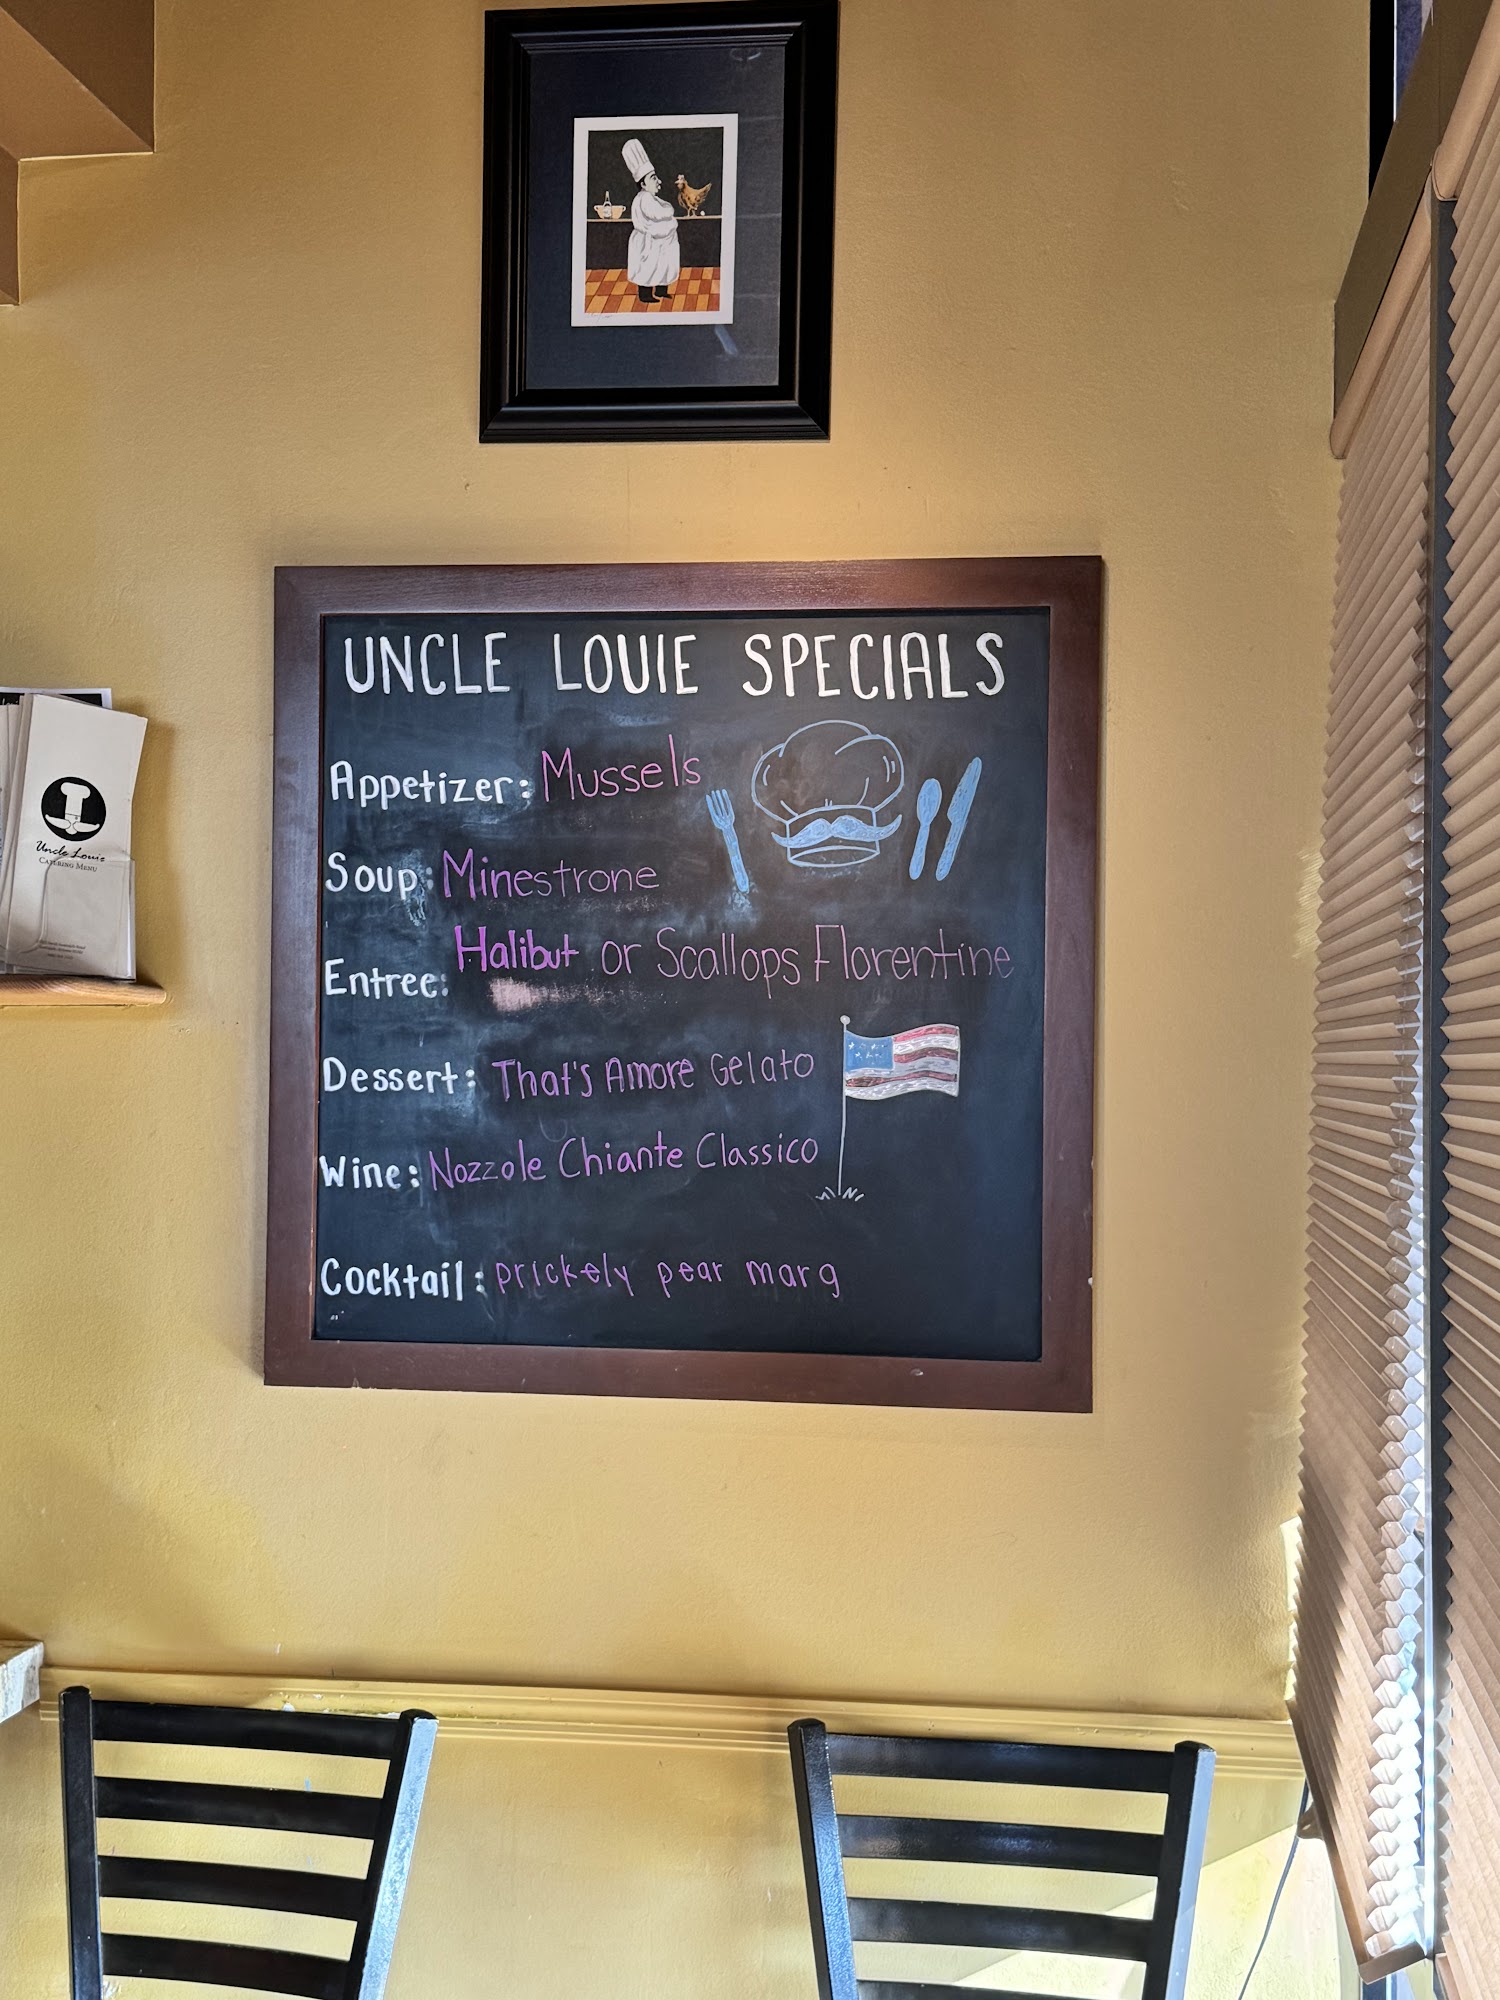 UNCLE LOUIE SPECIALS
Appetizer: Mussels
Soup: Minestrone
Entree: Halibut or Scallops Florentine
Dessert: That's Amore Gelato
Wine: Nozzole Chiante Classico
Cocktail: prickely pear marg
Uncle Louie
CATERING MENU